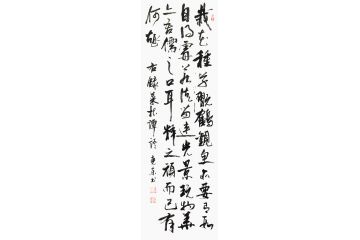 栽花種竹玩鶴觀魚亦要有段
自得處若徒留連光景玩物華
亦吾儒之口耳釋之頑而已有
何趣 右錄菜根譚語 書